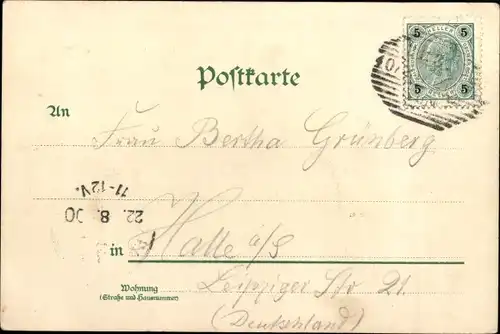 5 5
HELLER
5 5
Postkarte
An
Frau Bertha Grünberg
11-12V.
22. 8. 00
in Halle a/S
Leipziger Str 21.
(Deutschland)
Wohnung
(Straße und Hausnummer)